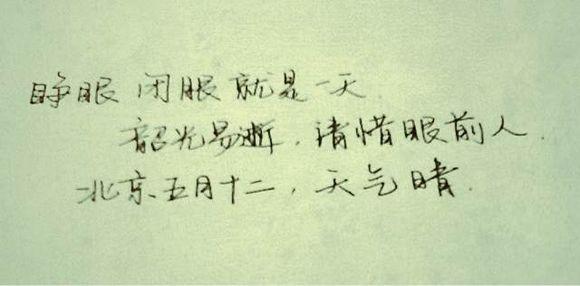 睁眼闭眼就是一天
韶光易逝，请惜眼前人.
北京五月十二，天气晴.